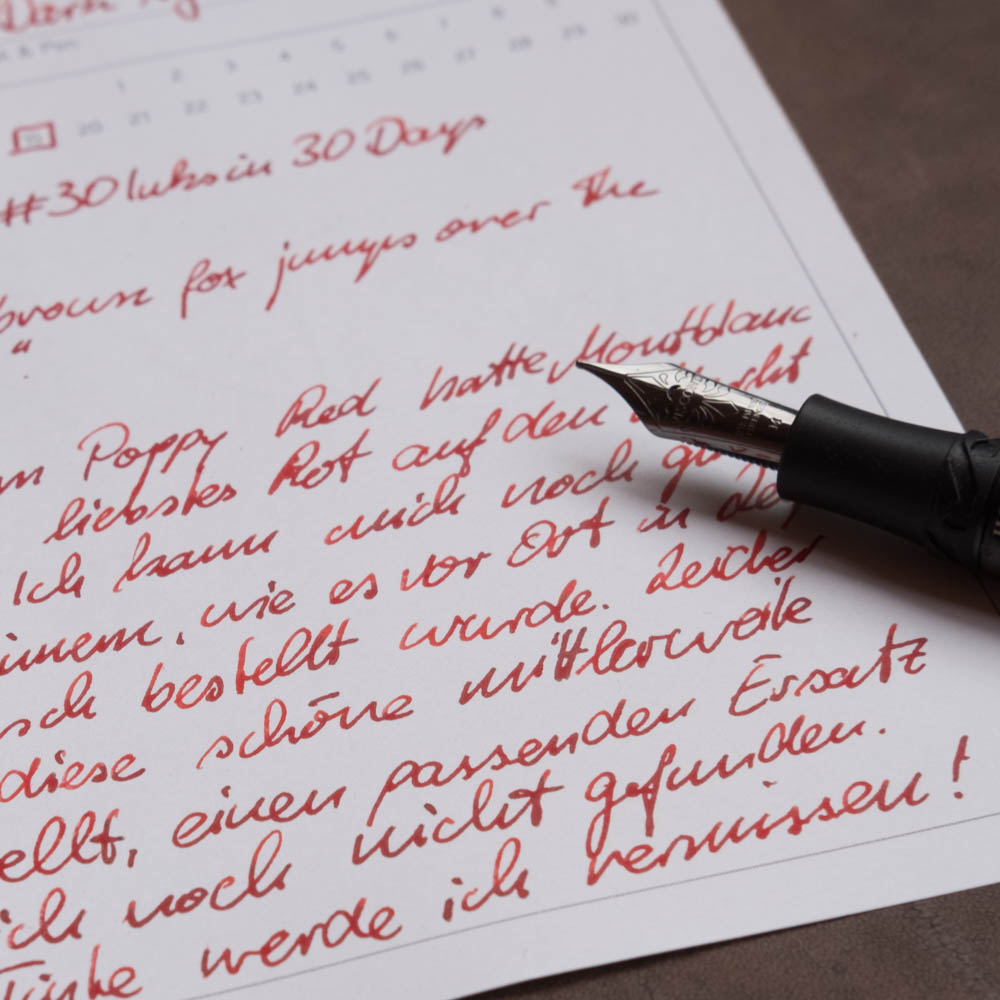 & Pen
1 2 3 4 5 6 7 8 9 10
19 20 21 22 23 24 25 26 27 28 29 30
#30Inks in 30 Days
browne fox jumps over the
"
Poppy Red hatte Montblanc
liebstes Rot auf den
Ich kann mich noch gut
wie es vor Ort in
bestellt wurde. Leider
diese schöne mittlerweile
ellt, einen passenden Ersatz
ich noch nicht gefunden.
Tinte werde ich vermissen!